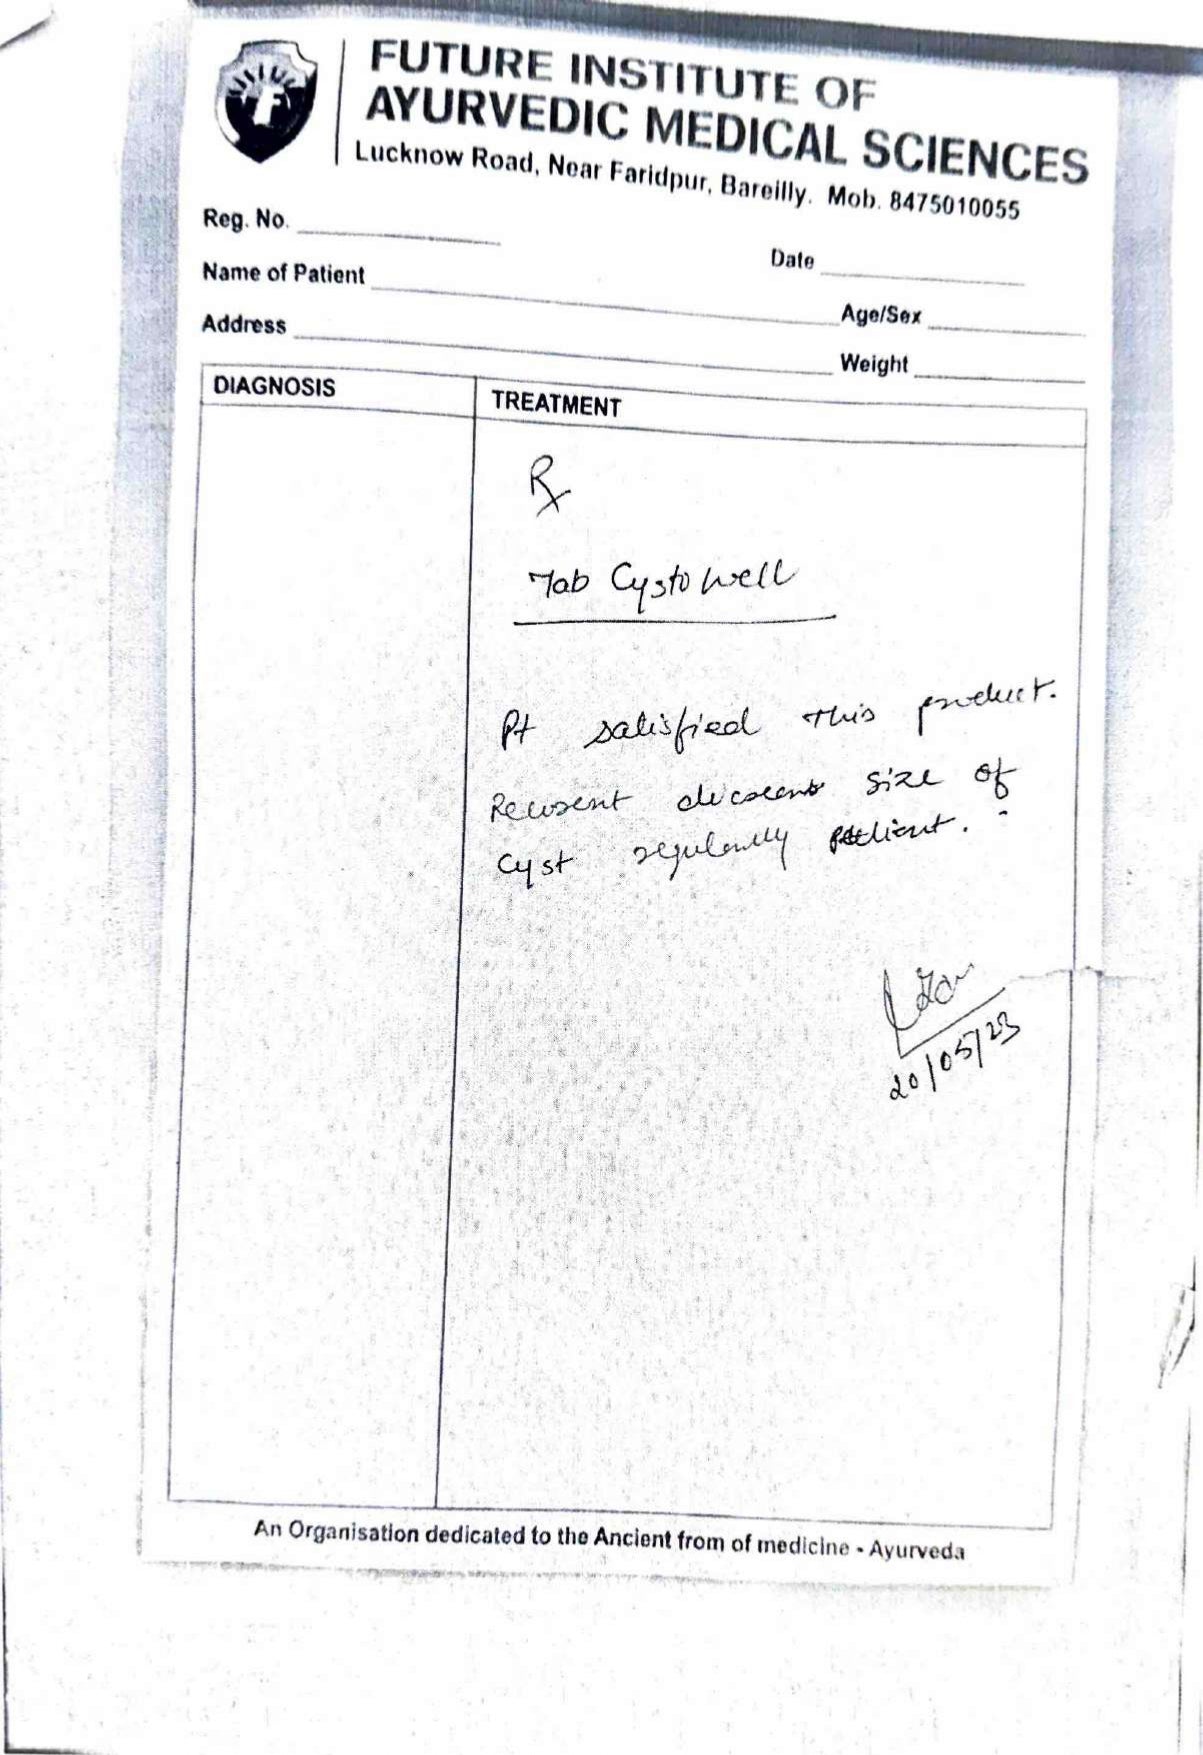 FUTURE INSTITUTE OF
AYURVEDIC MEDICAL SCIENCES
Lucknow Road, Near Faridpur, Bareilly. Mob. 8475010055
Reg. No.
Date
Name of Patient
Age/Sex
Address
Weight
DIAGNOSIS
TREATMENT
Rx
Tab Cystowell
Pt satisfied this product.
size of
Cyst regularly patient.
20/05/23
An Organisation dedicated to the Ancient from of medicine - Ayurveda